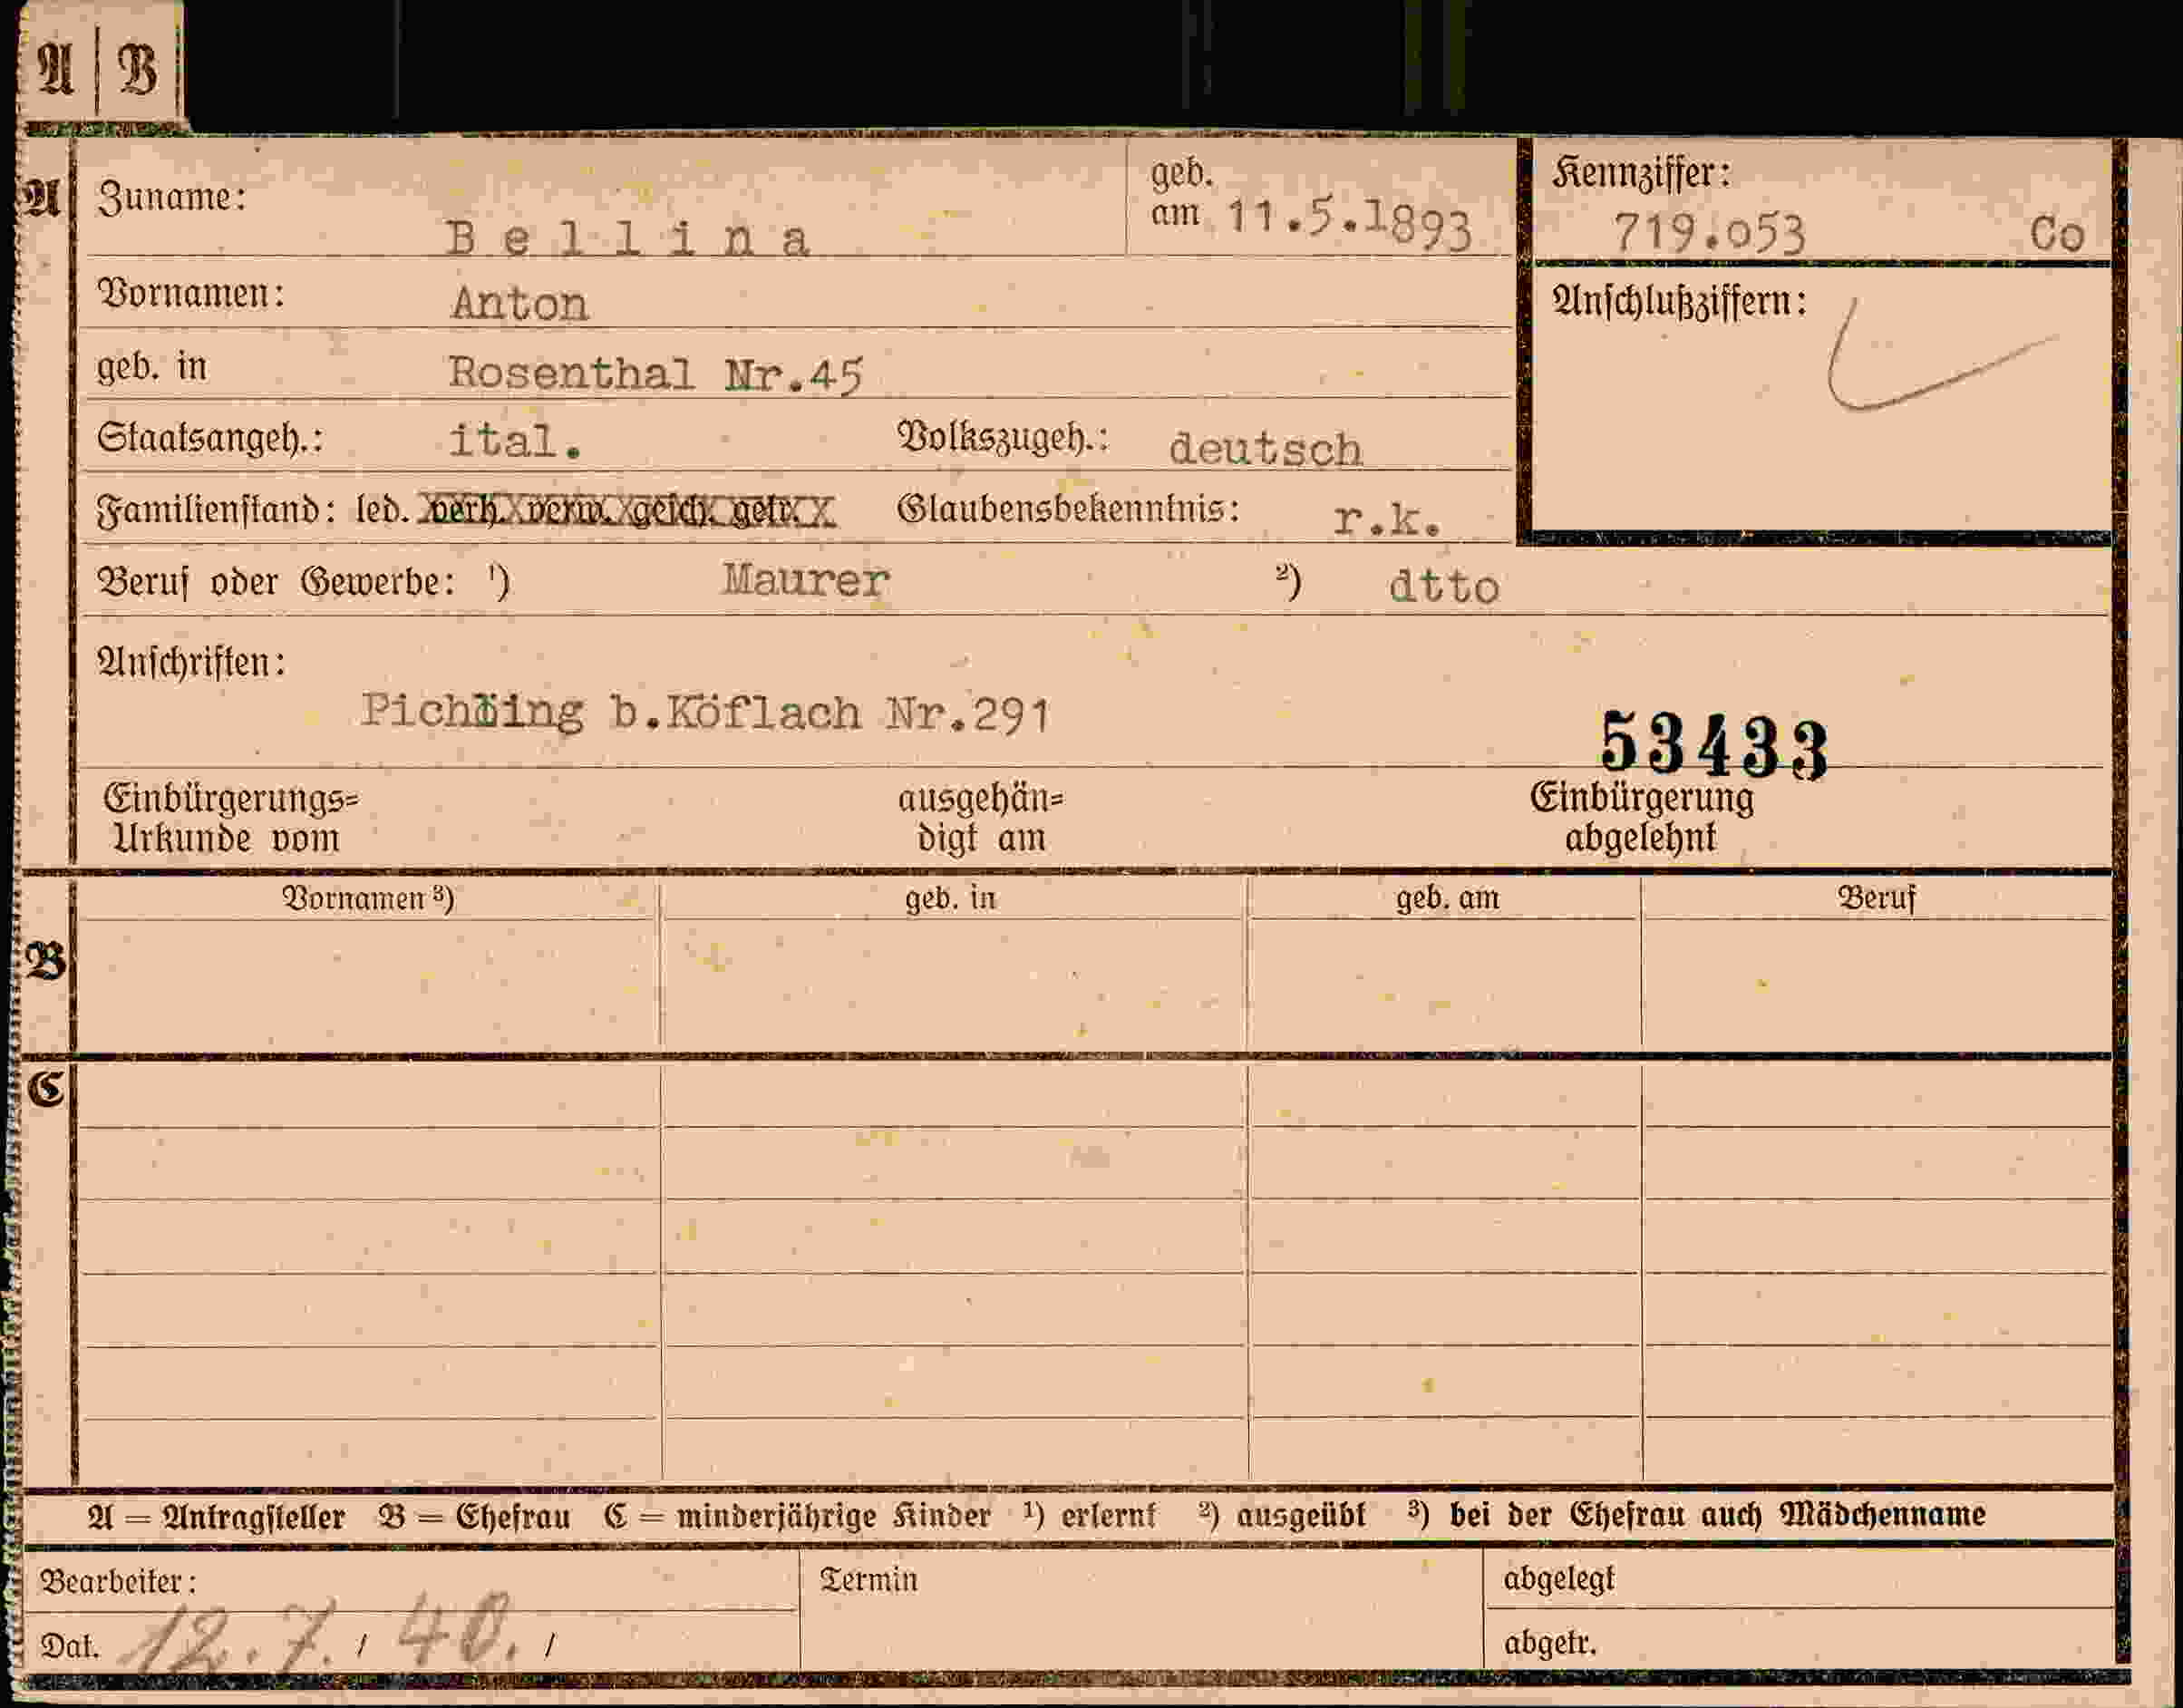 A | B
A Zuname: Bellina geb. am 11.5.1893 Kennziffer: 719.053 Co
Vornamen: Anton Anschlußziffern:
geb. in Rosenthal Nr.45
Staatsangeh.: ital. Volkszugeh.: deutsch
Familienstand: led. verh. verw. gesch. getr. Glaubensbekenntnis: r.k.
Beruf oder Gewerbe: ¹) Maurer ²) dtto
Anschriften:
Pichling b.Köflach Nr.291
53433
Einbürgerungs= ausgehän= Einbürgerung
Urkunde vom digt am abgelehnt
Vornamen ³) geb. in geb. am Beruf
B
C
A = Antragsteller B = Ehefrau C = minderjährige Kinder ¹) erlernt ²) ausgeübt ³) bei der Ehefrau auch Mädchenname
Bearbeiter: Termin abgelegt
Dat. 12.7./40./ abgetr.